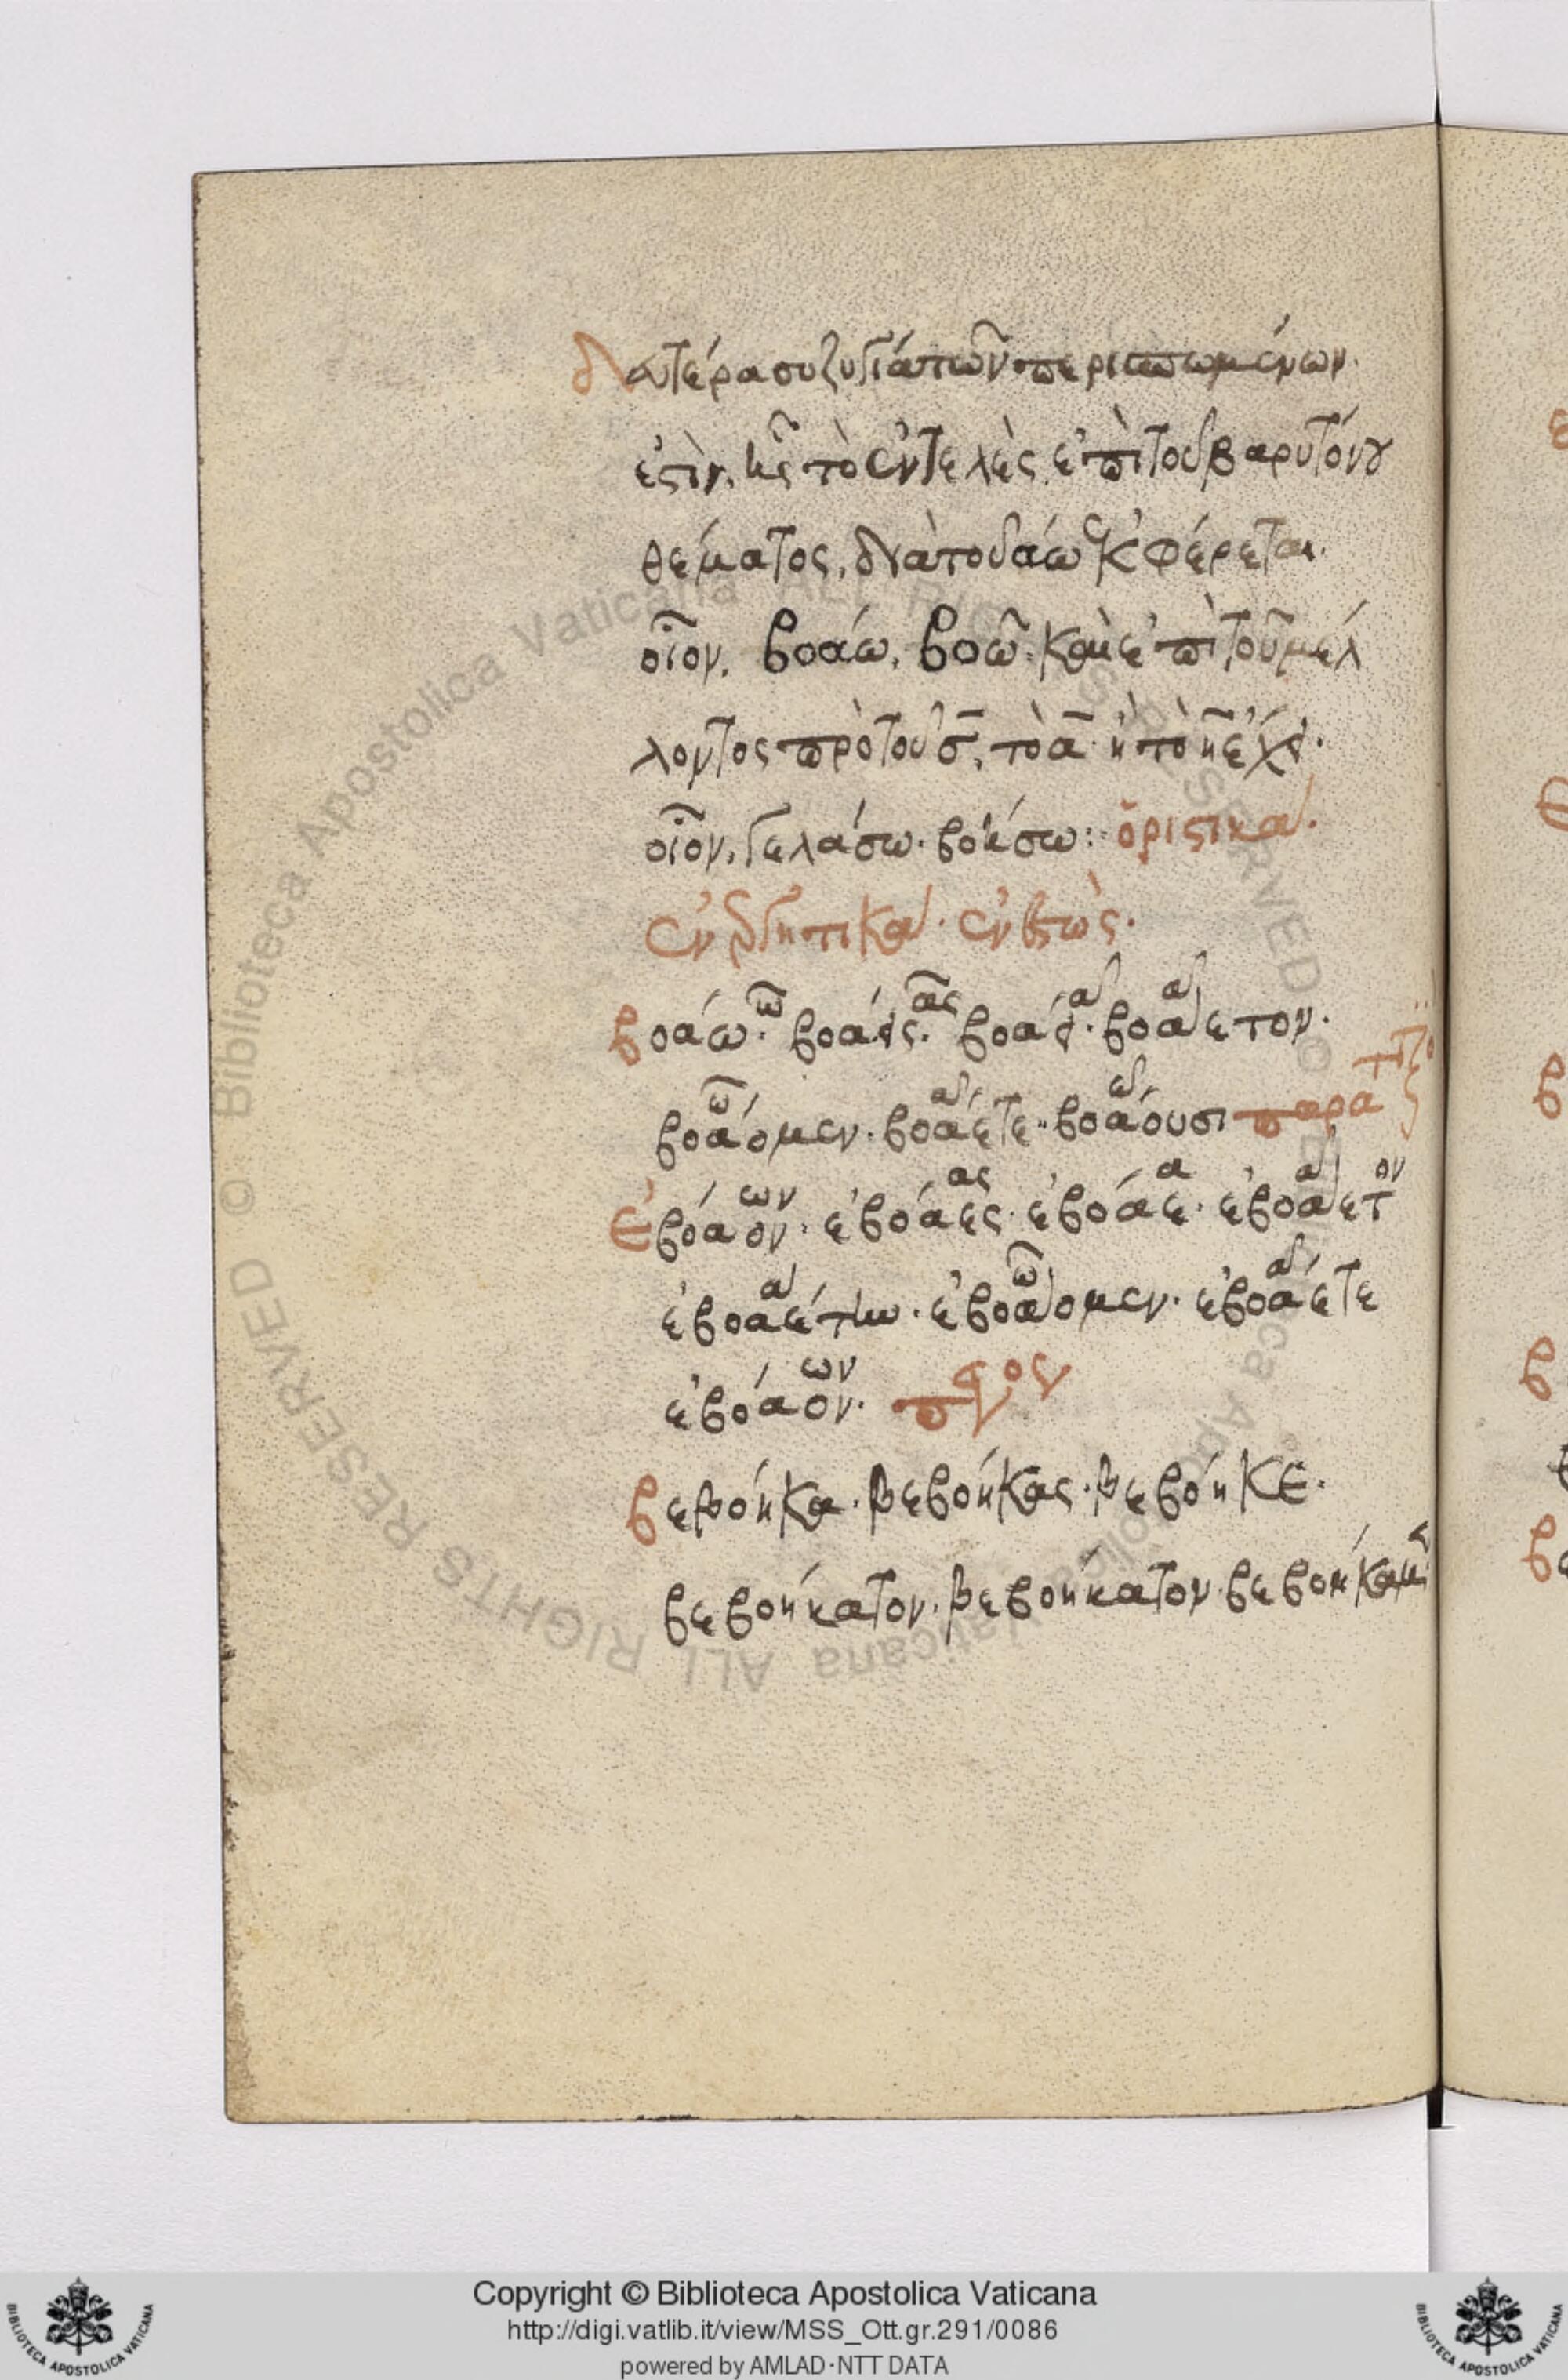 δευτέρα συζυγία τῶν περισπωμένων.
ἐστὶν. ἧς τὸ ἐντελὲς ἐπὶ τοῦ βαρυτόνου
θέματος, διὰ τοῦ άω ἐκφέρεται.
οἷον, βοάω, βοῶ. καὶ ἐπὶ τοῦ μέλ
λοντος πρὸ τοῦ σ, τὸ α ἢ τὸ η ἔχει.
οἷον, γελάσω. βοήσω: ὁριστικά.
ἐνεργητικά. ἐνεστώς.
βοάω ῶ. βοάεις ᾶς. βοάει ᾶ. βοάετον ᾶ.
βοάομεν ῶ. βοάετε ᾶ. βοάουσι ῶ παρατατικός
Ἐβόαον ων. ἐβόαες ας. ἐβόαε α. ἐβοάετον ᾶ
ἐβοαέτην ά. ἐβοάομεν ῶ. ἐβοάετε ᾶ
ἐβόαον ων. παρακείμενος
βεβόηκα. βεβόηκας. βεβόηκε.
βεβοήκατον. βεβοήκατον. βεβοήκαμεν
Copyright © Biblioteca Apostolica Vaticana
http://digi.vatlib.it/view/MSS_Ott.gr.291/0086
powered by AMLAD·NTT DATA